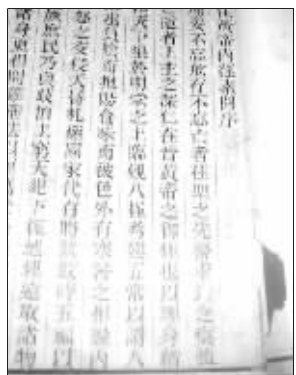 黃帝內經素問序
安不忘危存不忘亡者往聖之先務求民之瘼
隱者上主之深仁在昔黃帝之御極也以理身緒
於明堂之上臨觀八極考建五常以謂人
負陰而抱陽食味而被色外有寒暑之相盪內
怒之交侵夭昬札瘥國家代有將欲斂時五福以
厥庶民乃與岐伯上窮天紀下極地理遠取諸物
諸身更相問難垂法以